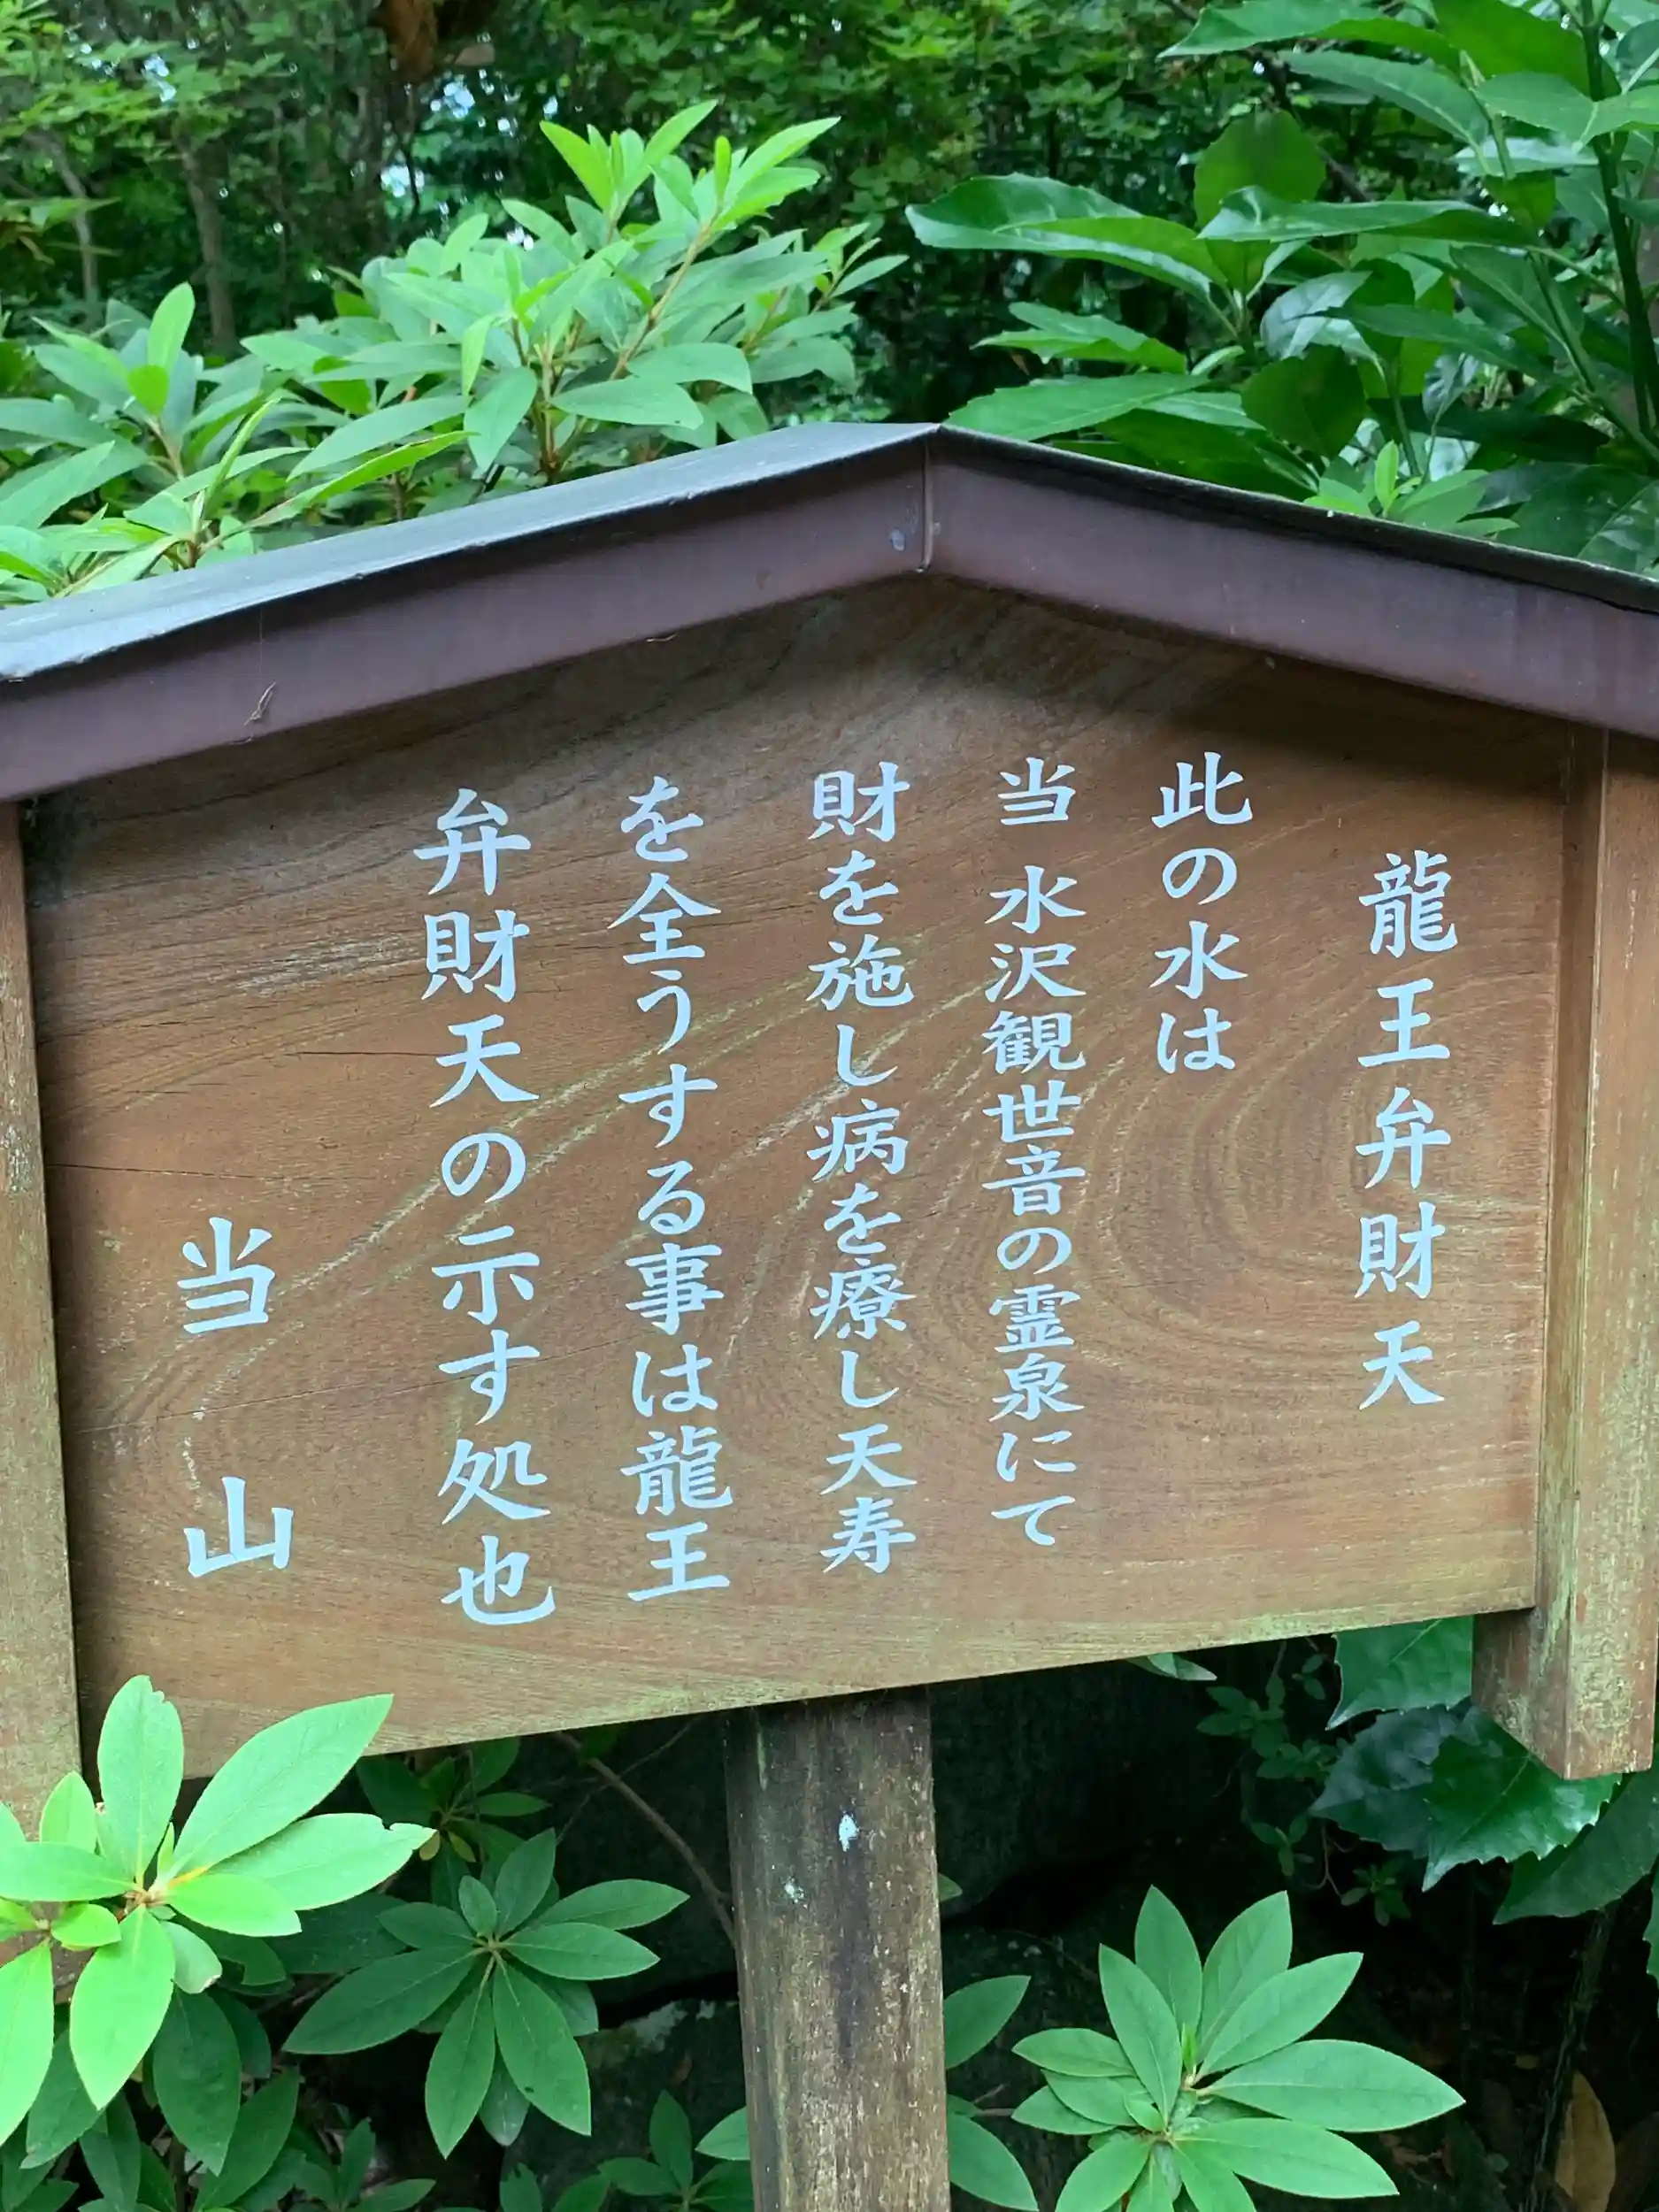 龍王弁財天
此の水は
当 水沢観世音の霊泉にて
財を施し病を療し天寿
を全うする事は龍王
弁財天の示す処也
当 山